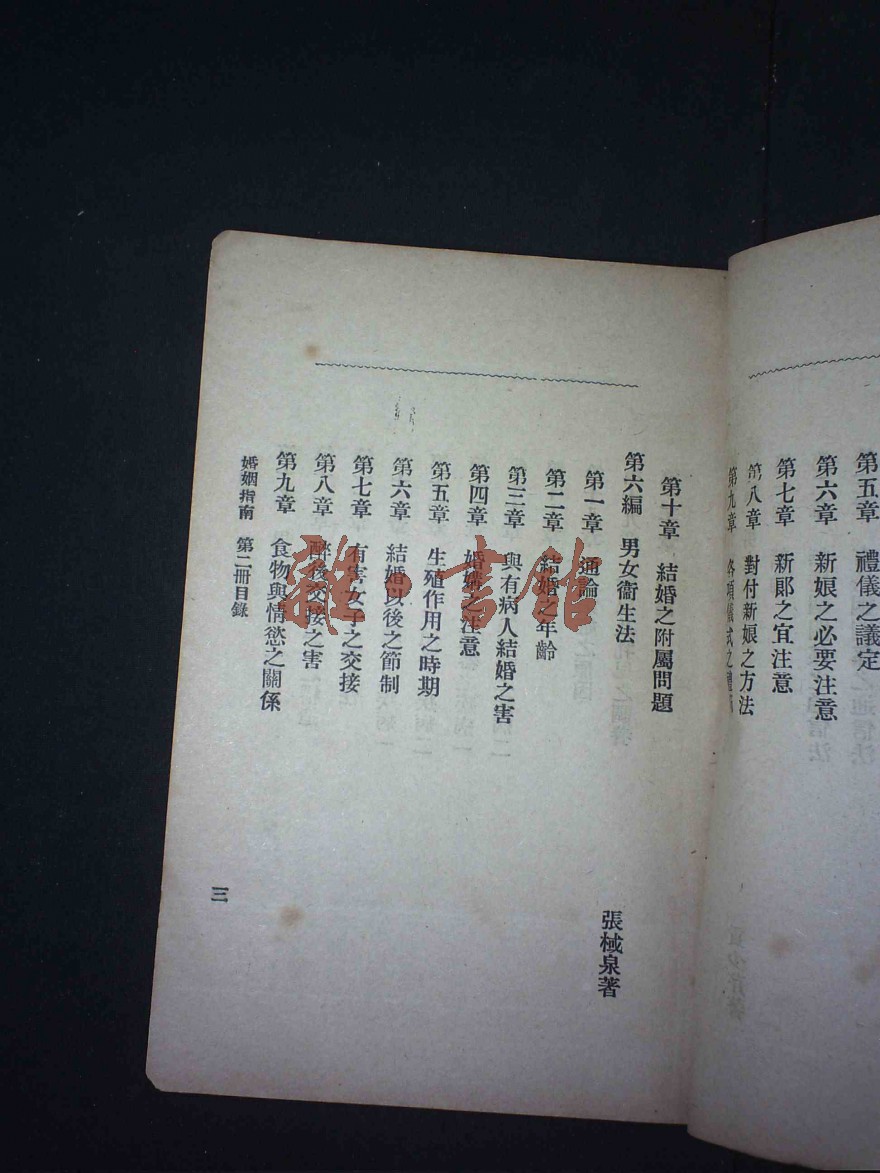 第五章　禮儀之議定
第六章　新娘之必要注意
第七章　新郎之宜注意
第八章　對付新娘之方法
第九章　各項儀式之禮
第十章　結婚之附屬問題
第六編　男女衞生法　張棫泉著
第一章　通論
第二章　結婚之年齡
第三章　與有病人結婚之害
第四章　婚媾之注意
第五章　生殖作用之時期
第六章　結婚以後之節制
第七章　有害女子之交接
第八章　醉後交接之害
第九章　食物與情慾之關係
婚姻指南　第二册目錄
三